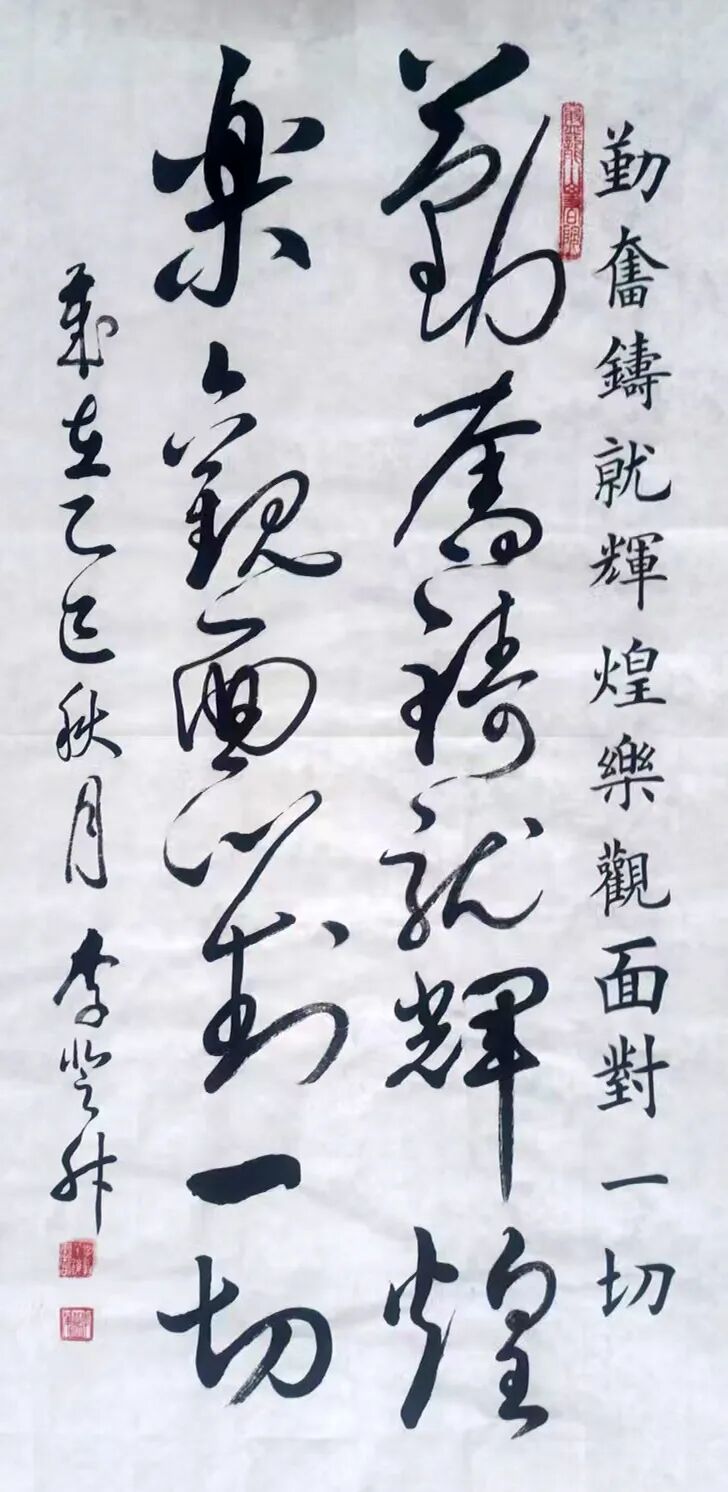 勤奮鑄就輝煌樂觀面對一切
勤奮鑄就輝煌
樂觀面對一切
歲在乙巳秋月 李登